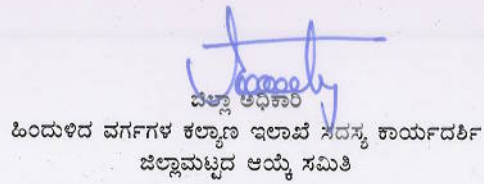 ಜಿಲ್ಲಾ ಅಧಿಕಾರಿ
ಹಿಂದುಳಿದ ವರ್ಗಗಳ ಕಲ್ಯಾಣ ಇಲಾಖೆ ಸದಸ್ಯ ಕಾರ್ಯದರ್ಶಿ
ಜಿಲ್ಲಾಮಟ್ಟದ ಆಯ್ಕೆ ಸಮಿತಿ